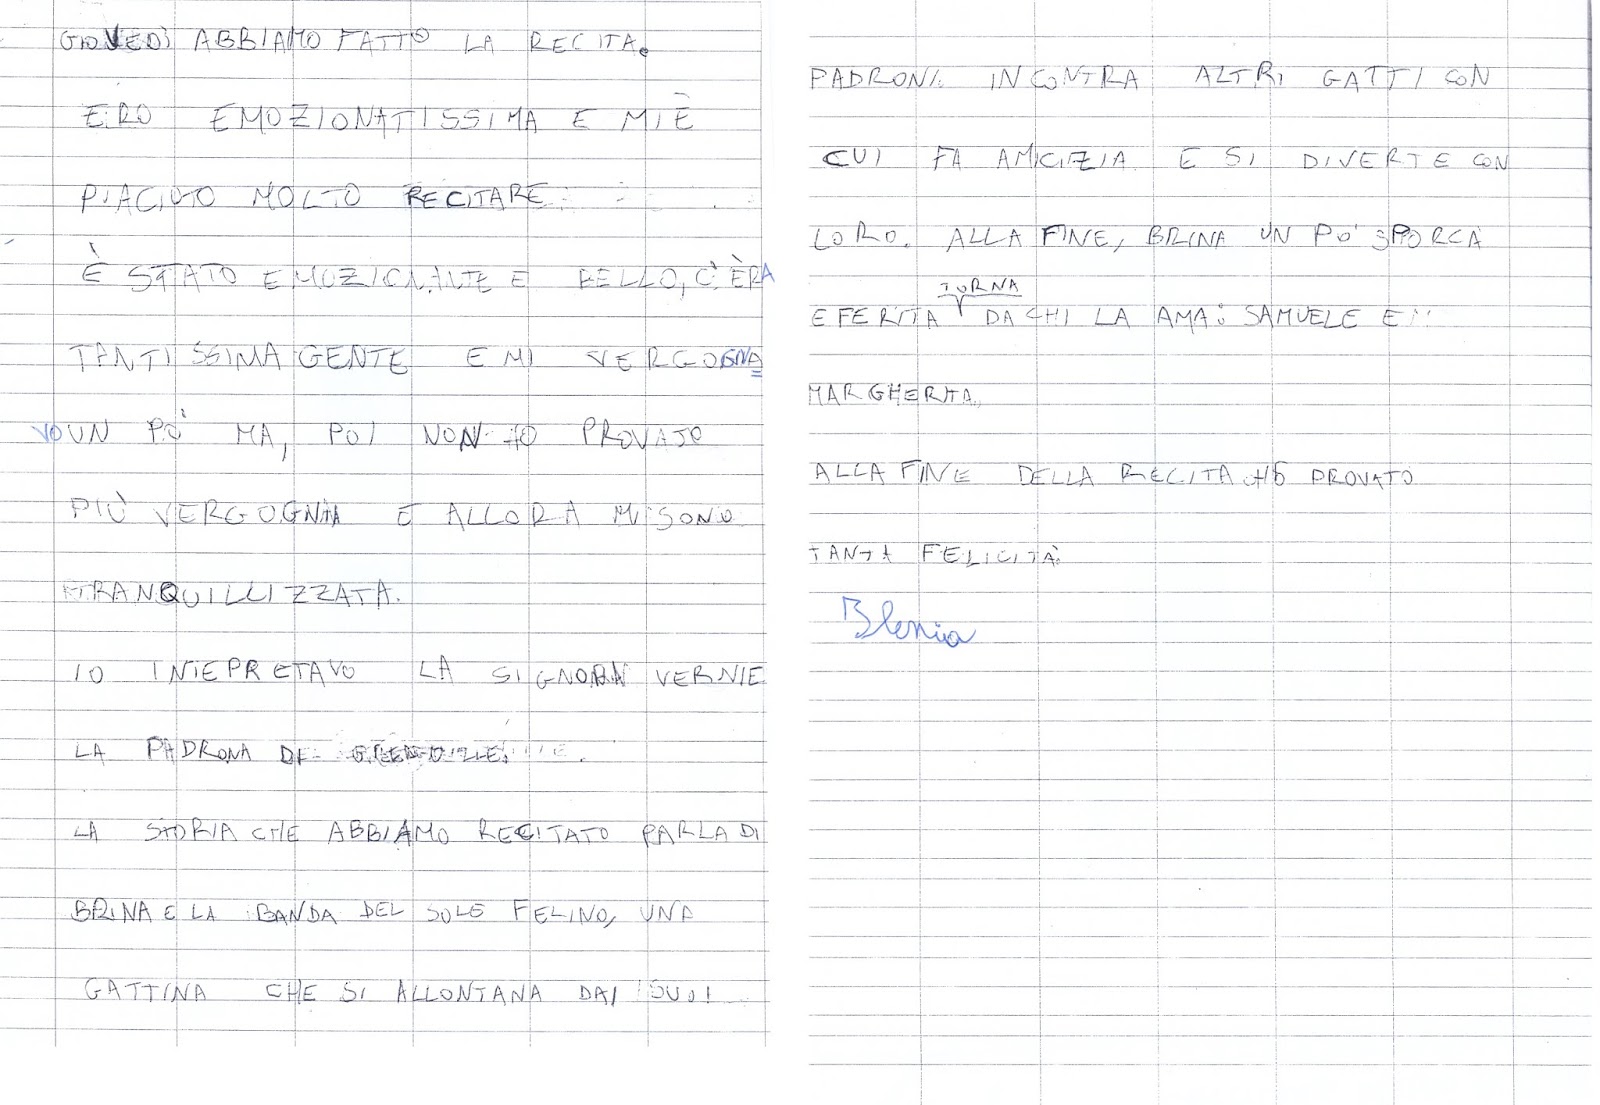 GIOVEDÌ ABBIAMO FATTO LA RECITA.
ERO EMOZIONATISSIMA E MI È
PIACIUTO MOLTO RECITARE.
È STATO EMOZIONANTE E BELLO, C'ÈRA
TANTISSIMA GENTE E MI VERGOGNA
VO UN PÒ MA, POI NON HO PROVATO
PIÙ VERGOGNA E ALLORA MI SONO
TRANQUILLIZZATA.
IO INTEPRETAVO LA SIGNORA VERNIE
LA PADRONA DE
LA STORIA CHE ABBIAMO RECITATO PARLA DI
BRINA E LA BANDA DEL SOLE FELINO, UNA
GATTINA CHE SI ALLONTANA DAI SUOI
PADRONI. INCONTRA ALTRI GATTI CON
CUI FA AMICIZIA E SI DIVERTE CON
LORO. ALLA FINE, BRINA UN PO' SPORCA
E FERITA TORNA DA CHI LA AMA: SAMUELE E
MARGHERITA.
ALLA FINE DELLA RECITA HO PROVATO
TANTA FELICITÀ.
Blenia